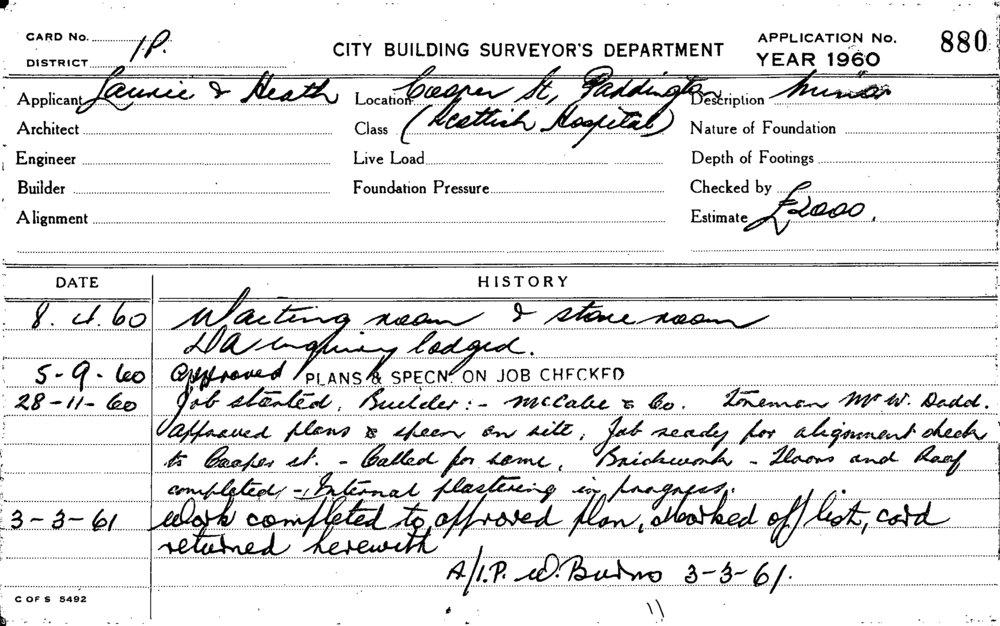 CARD NO. 1P.
DISTRICT
CITY BUILDING SURVEYOR'S DEPARTMENT
APPLICATION NO. 880
YEAR 1960
Applicant Laurie & Heath Location Cooper St, Paddington Description Minor
Architect Class (Scottish Hospital) Nature of Foundation
Engineer Live Load Depth of Footings
Builder Foundation Pressure Checked by
Alignment Estimate £2000.
DATE HISTORY
8.4.60 Waiting room & store room
DA enquiry lodged.
5-9-60 Approved PLANS & SPECN. ON JOB CHECKED
28-11-60 Job started. Builder:- McCabe & Co. Foreman Mr W. Dodd.
Approved plans & specn on site. Job ready for alignment check
to Cooper st. - Called for same. Brickwork - Floors and Roof
completed, - Internal plastering in progress.
3-3-61 Work completed to approved plan, marked off list, card
returned herewith
A/I.P. W. Burns 3-3-61.
C OF S 5492